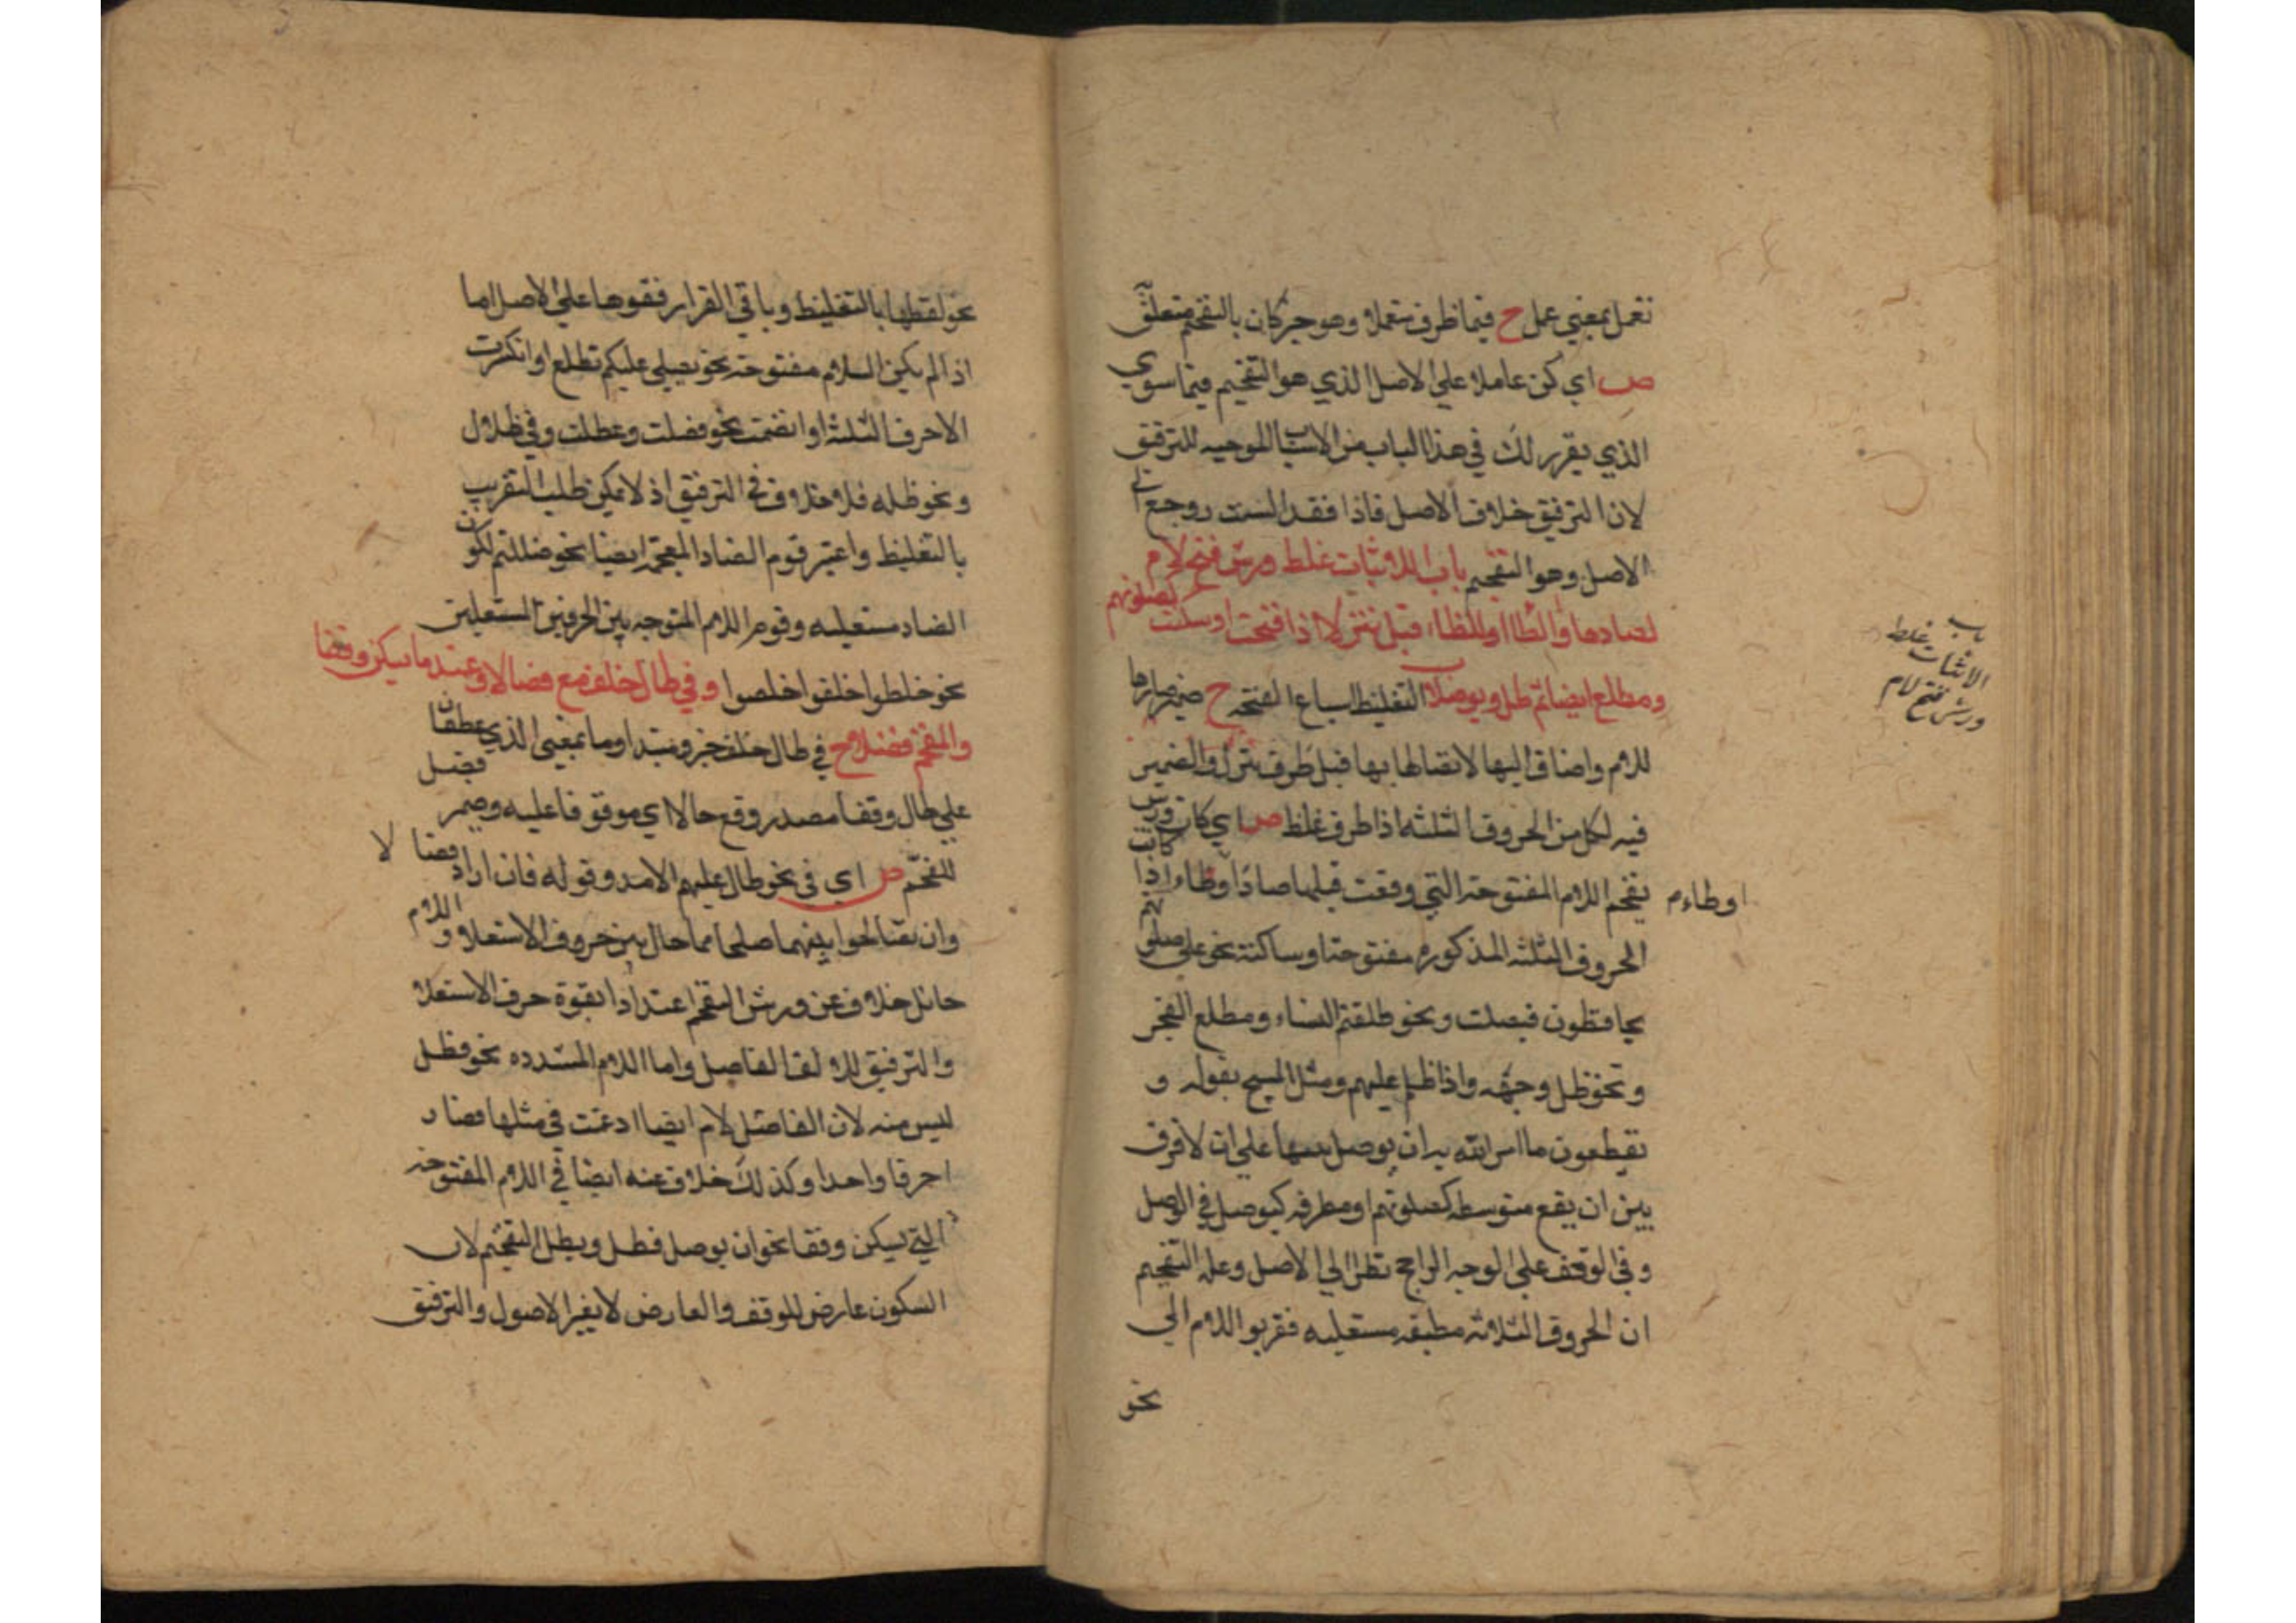 تعمل بمعني عمل ح فيما ظرف متعملا وهو خبر كان بالتفخيم متعلق
ص اي كن عاملا علي الاصل الذي هو التفخيم فيما سوي
الذي يقرر لك في هذا الباب من الاسباب الموجبه للترقيق
لان الترقيق خلاف الاصل فاذا فقد السبب رجع الي
الاصل وهو التفخيم باب اللامات غلظ ورش فتح لام
لصادها والطا او للظاء قبل تنزلا اذا فتحت او سكنت كصلوتهم
ومطلع ايضا ثم ظل ويوصلا ب التغليظ اشباع الفتحه ح ضمير صادها
للام واضاف اليها لاتصالها بها قبل ظرف تنزل والضمير
فيه لكل من الحروف الثلثه اذا ظرف غلظ ص اي كان ورش
يفخم اللام المفتوحة التي وقعت قبلها صادا وظاء اذا كانت
اوطاء م
الحروف الثلثه المذكوره مفتوحة او ساكنة نحو علي صلوتهم
يحافظون فيصلت ونحو طلقتم النساء ومطلع الفجر
ونحو ظل وجهه واذا اظلم عليهم ومثل المسيح بقوله و
يقطعون ما امر الله به ان يوصل علي ان لا فرق
بين ان يقع متوسطه كصلوتهم او مطرفه كيوصل في الوصل
وفي الوقف علي الوجه الراجح نظرا الي الاصل وعله التفخيم
ان الحروف الثلاثه مطبقه مستعليه فقربوا اللام الي
نحو
باب
الاثبات غلظ
ورش فتح لام
نحو لفظها بالتغليظ وباقي القرار فقوها علي الاصل اما
اذا لم يكن اللام مفتوحة نحو يصلي عليكم تطلع او انكسرت
الاحرف الثلثة او انضمت نحو فصلت وعطلت وفي ظلال
ونحو ظله فلا خلاف في الترقيق اذ لا يمكن طلب التقريب
بالتغليظ واعتبر قوم الضاد المعجمه ايضا نحو ضللتم لكون
الضاد مستعليه وقوم اللام المتوجه بين الحرفين المستعليين
نحو خلطوا اخلفوا اخلصوا وفي طال خلف مع فصالا وعندما يسكن وقفا
والمفخم فضلا ح في طال خلف خبر ومبتدا وما بمعني الذي عطفا
علي طال وقفا مصدر وقع حالا اي موقوفا عليه وضمير فضل
للمفخم ص اي في نحو طال عليهم الامد وقوله فان ارادا فصالا
وان يصالحا بينهما صلحا مما حال بين حروف الاستعلا واللام
حائل خلاف عن ورش التفخيم اعتدادا بقوة حرف الاستعلا
والترقيق للا لقا الفاصل واما اللام المشدده نحو فظل
ليس منه لان الفاصل لام ايضا ادغمت في مثلها فصار
احرفا واحدا وكذلك خلاف عنه ايضا في اللام المفتوحة
التي يسكن وقفا نحو ان يوصل فطل وبطل التفخيم لان
السكون عارض للوقف والعارض لا يغير الاصول والترقيق